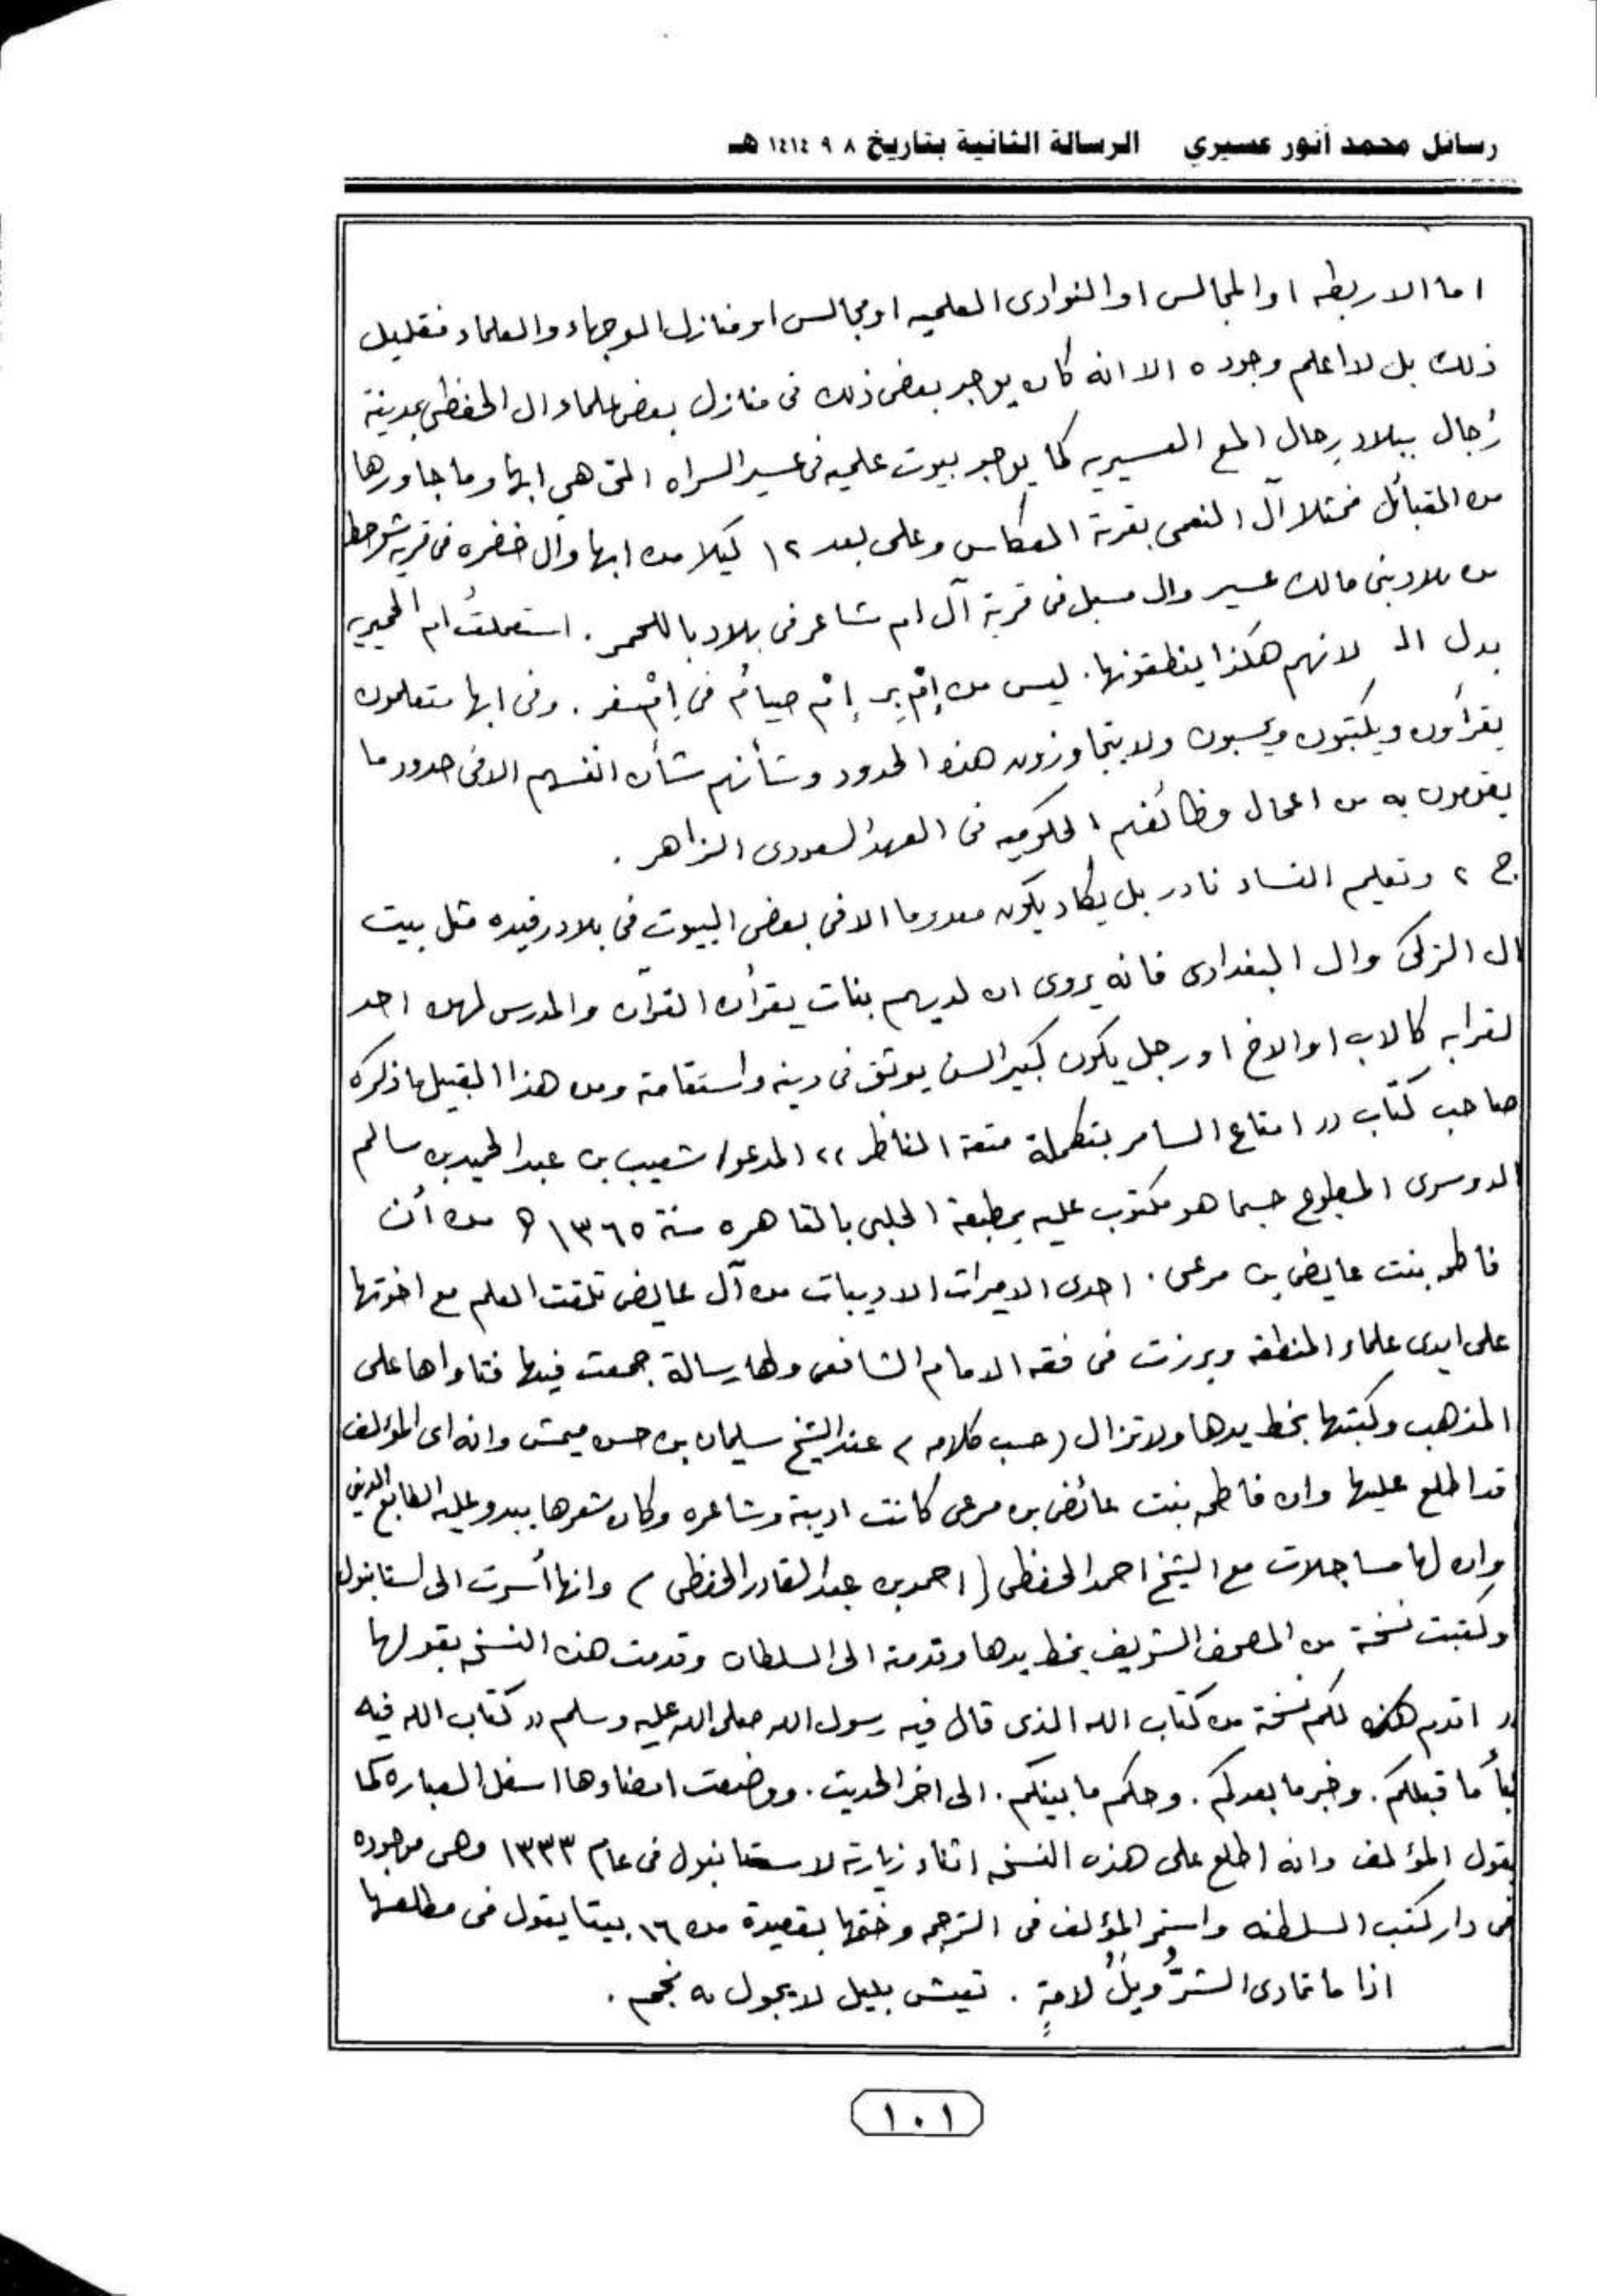 رسائل محمد أنور عسيري الرسالة الثانية بتاريخ ٨ ٩ ١٤١٤ هـ
اما الاربطه او المجالس او النوادى العلميه او مجالس او منازل الوجهاء والعلماء فقليل
ذلك بل لا اعلم وجوده الا انه كان يوجد بعض ذلك فى منازل بعض علماء ال الحفظى بمدينة
رُجال ببلاد رجال المع العسيريه كما يوجد بيوت علميه فى عسير السراه التى هي ابها وما جاورها
من القبائل فمثلا آل النعمى بقرية العكاس وعلى بعد ١٢ كيلا من ابها وآل خضره فى قرية شوحط
من بلاد بنى مالك عسير وال مسبل فى قرية آل ام شاعر فى بلاد باللحمر . استعملتُ ام الحميريه
بدل الـ لانهم هكذا ينطقونها . ليس من اِمْ بِر إمْ صيامُ فى اِمْ سفر . وفى ابها متعلمون
يقرأون ويكتبون ويحسبون ولا يتجاوزون هذه الحدود وشأنهم شأن انفسهم الا فى حدود ما
يقومون به من اعمال وظائفهم الحكوميه فى العهد السعودى الزاهر .
ج ٢ وتعليم النساء نادر بل يكاد يكون معدوما الا فى بعض البيوت فى بلاد رفيده مثل بيت
ال الزكى وال البغدادى فانه يروى ان لديهم بنات يقرأن القرآن والمدرس لهن احد
لقرابه كالاب او الاخ او رجل يكون كبير السن يوثق فى دينه واستقامته ومن هذا القبيل ما ذكره
صاحب كتاب (( امتاع السامر بتكملة متعة الناظر )) المدعو / شعيب بن عبد الحميد بن سالم
الدوسرى المطبوع حسبما هو مكتوب عليه بمطبعة الحلبى بالقاهره سنة ١٣٦٥ هـ من أن
فاطمه بنت عايض بن مرعى . احدى الاميرات الاديبات من آل عايض تلقت العلم مع اخوتها
على ايدى علماء المنطقه وبرزت فى فقه الامام الشافعى ولها رسالة جمعت فيها فتاواها على
المذهب وكتبتها بخط يدها ولا تزال ( حسب كلامه ) عند الشيخ سليمان بن حسن ميمش وانه اى المؤلف
قد اطلع عليها وان فاطمه بنت عائض بن مرعى كانت اديبة وشاعره وكان شعرها يبدو عليه الطابع الدينى
وان لها مساجلات مع الشيخ احمد الحفظى ( احمد بن عبد القادر الحفظى ) وانها أسرت الى استانبول
وكتبت نسخة من المصحف الشريف بخط يدها وقدمته الى السلطان وقدمت هذه النسخه بقولها
(( اقدم هذه لكم نسخة من كتاب الله الذى قال فيه رسول الله صلى الله عليه وسلم (( كتاب الله فيه
نبأ ما قبلكم . وخبر ما بعدكم . وحكم ما بينكم . الى اخر الحديث . ووضعت امضاءها اسفل العباره كما
يقول المؤلف وانه اطلع على هذه النسخه اثناء زيارته لاستانبول فى عام ١٣٣٣ وهى موجوده
فى دار كتب السلطنه واستمر المؤلف فى الترجمه وختمها بقصيدة من ١٦ بيتا يقول فى مطلعها
اذا ما تمادى الشرُّ ويلُ لامةٍ . تعيش بليل لا يجول به نجم .
١٠١